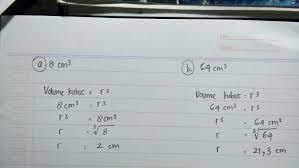 a) 8 cm³
Volume kubus = r³
8 cm³ = r³
r³ = 8 cm³
r = ³√8
r = 2 cm
b. 64 cm³
Volume kubus = r³
64 cm³ = r³
r³ = 64 cm³
r = ³√64
r = 21,3 cm